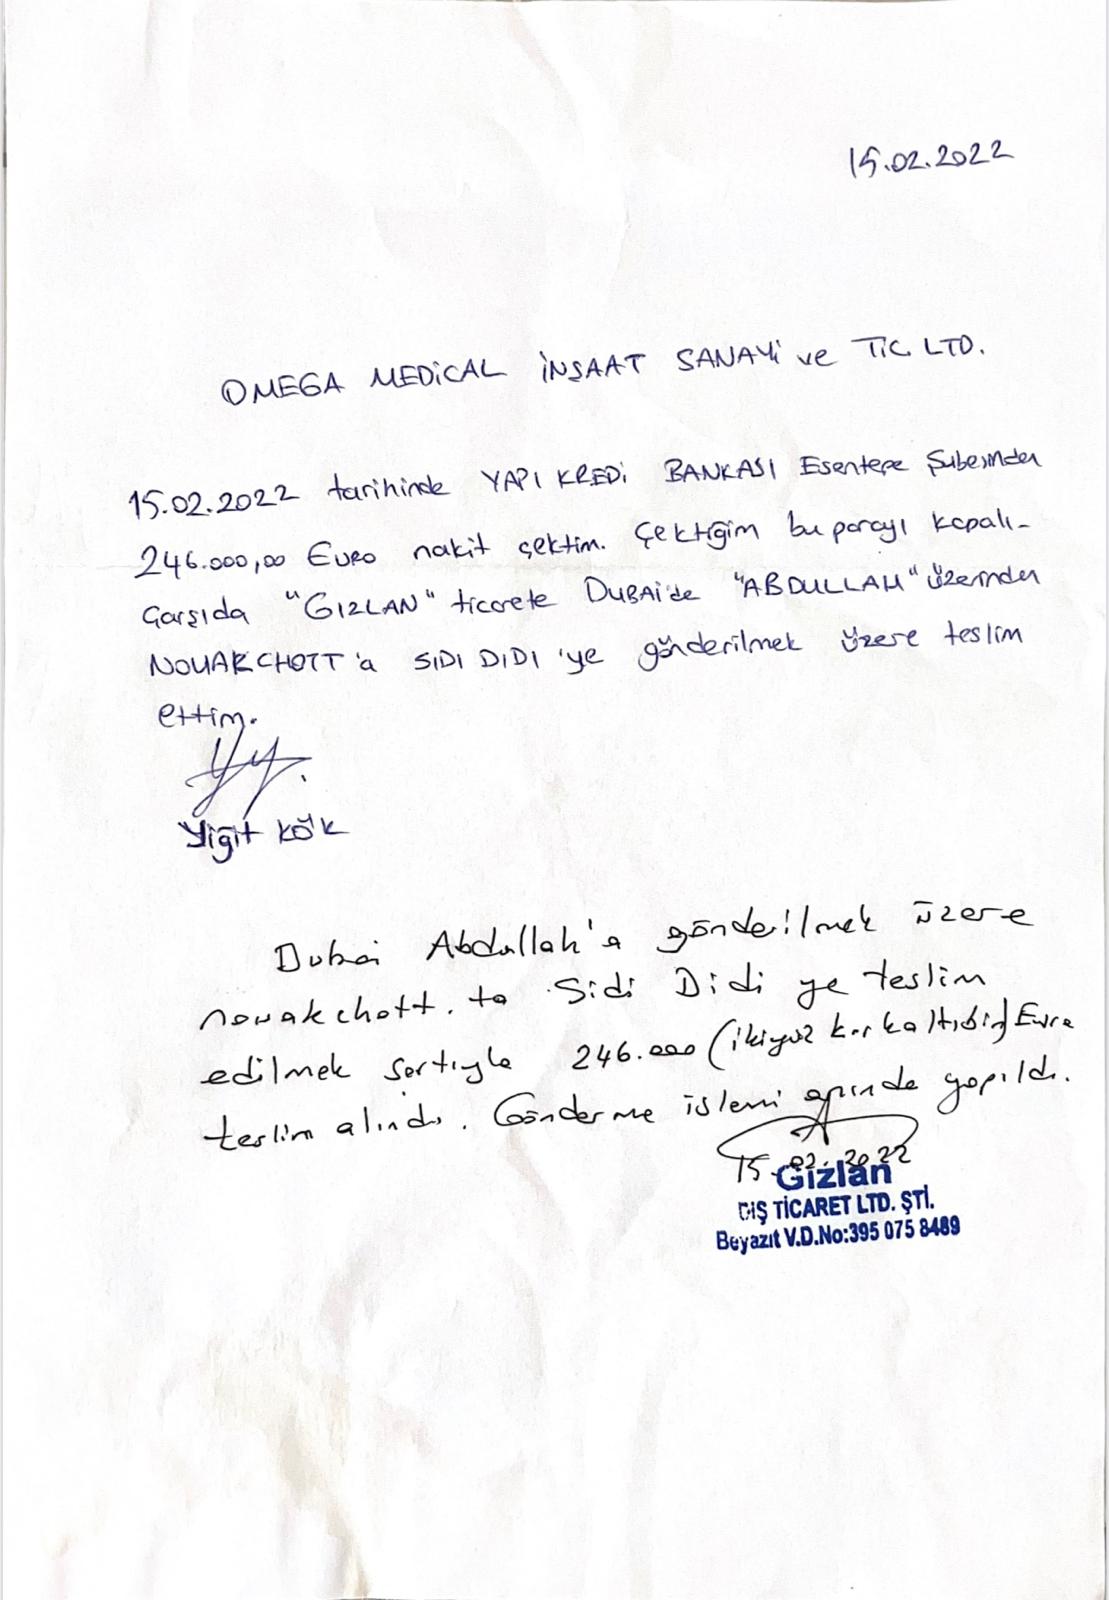 15.02.2022
OMEGA MEDiCAL İNŞAAT SANAYi ve TiC. LTD.
15.02.2022 tarihinde YAPI KREDi BANKASI Esentepe Şubesinden
246.000,00 Euro nakit çektim. Çektiğim bu parayı kapalı-
çarşıda "GIZLAN" ticarete DUBAi'de "ABDULLAH" üzerinden
NOUAKCHOTT'a SIDI DIDI'ye gönderilmek üzere teslim
ettim.
Yiğit KÖK
Dubai Abdullah'a gönderilmek üzere
nouakchott.ta Sidi Didi ye teslim
edilmek şartıyla 246.000 (ikiyüz kırkaltıbin) Euro
teslim alındı. Gönderme işlemi anında yapıldı.
15.02.2022
Gizlan
DIŞ TİCARET LTD. ŞTİ.
Beyazıt V.D.No:395 075 8489